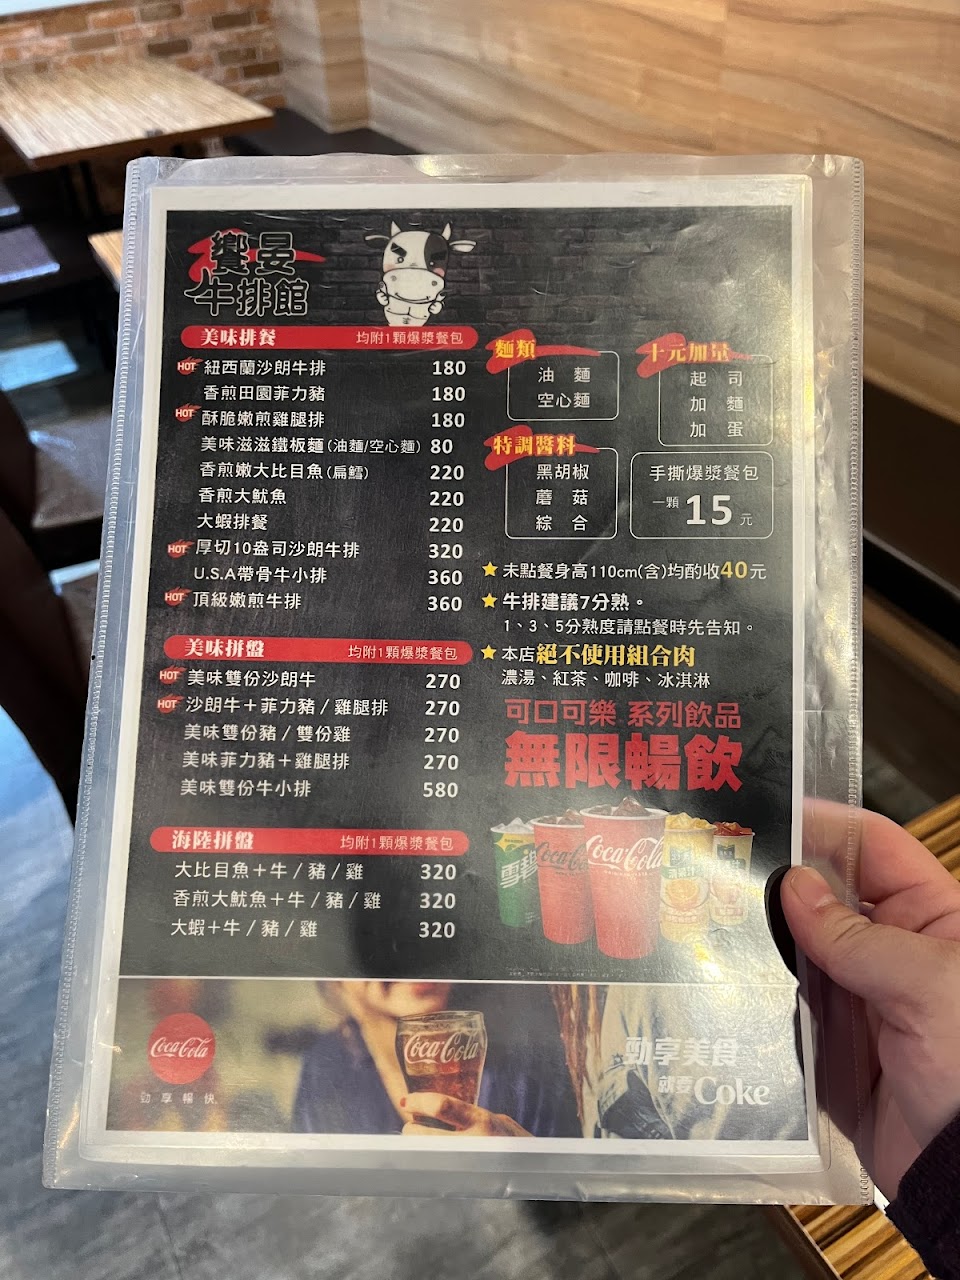 饗晏
牛排館
美味排餐 均附1顆爆漿餐包
HOT 紐西蘭沙朗牛排 180
香煎田園菲力豬 180
HOT 酥脆嫩煎雞腿排 180
美味滋滋鐵板麵(油麵/空心麵) 80
香煎嫩大比目魚(扁鱈) 220
香煎大魷魚 220
大蝦排餐 220
HOT 厚切10盎司沙朗牛排 320
U.S.A帶骨牛小排 360
HOT 頂級嫩煎牛排 360
美味拼盤 均附1顆爆漿餐包
HOT 美味雙份沙朗牛 270
HOT 沙朗牛+菲力豬/雞腿排 270
美味雙份豬/雙份雞 270
美味菲力豬+雞腿排 270
美味雙份牛小排 580
海陸拼盤 均附1顆爆漿餐包
大比目魚+牛/豬/雞 320
香煎大魷魚+牛/豬/雞 320
大蝦+牛/豬/雞 320
麵類
油 麵
空心麵
十元加量
起 司
加 麵
加 蛋
特調醬料
黑胡椒
蘑 菇
綜 合
手撕爆漿餐包
一顆 15 元
未點餐身高110cm(含)均酌收40元
牛排建議7分熟。
1、3、5分熟度請點餐時先告知。
本店絕不使用組合肉
濃湯、紅茶、咖啡、冰淇淋
可口可樂 系列飲品
無限暢飲
雪碧
Coca-Cola
Coca-Cola
Coca-Cola
勁享暢快
Coca-Cola
勁享美食
就要Coke